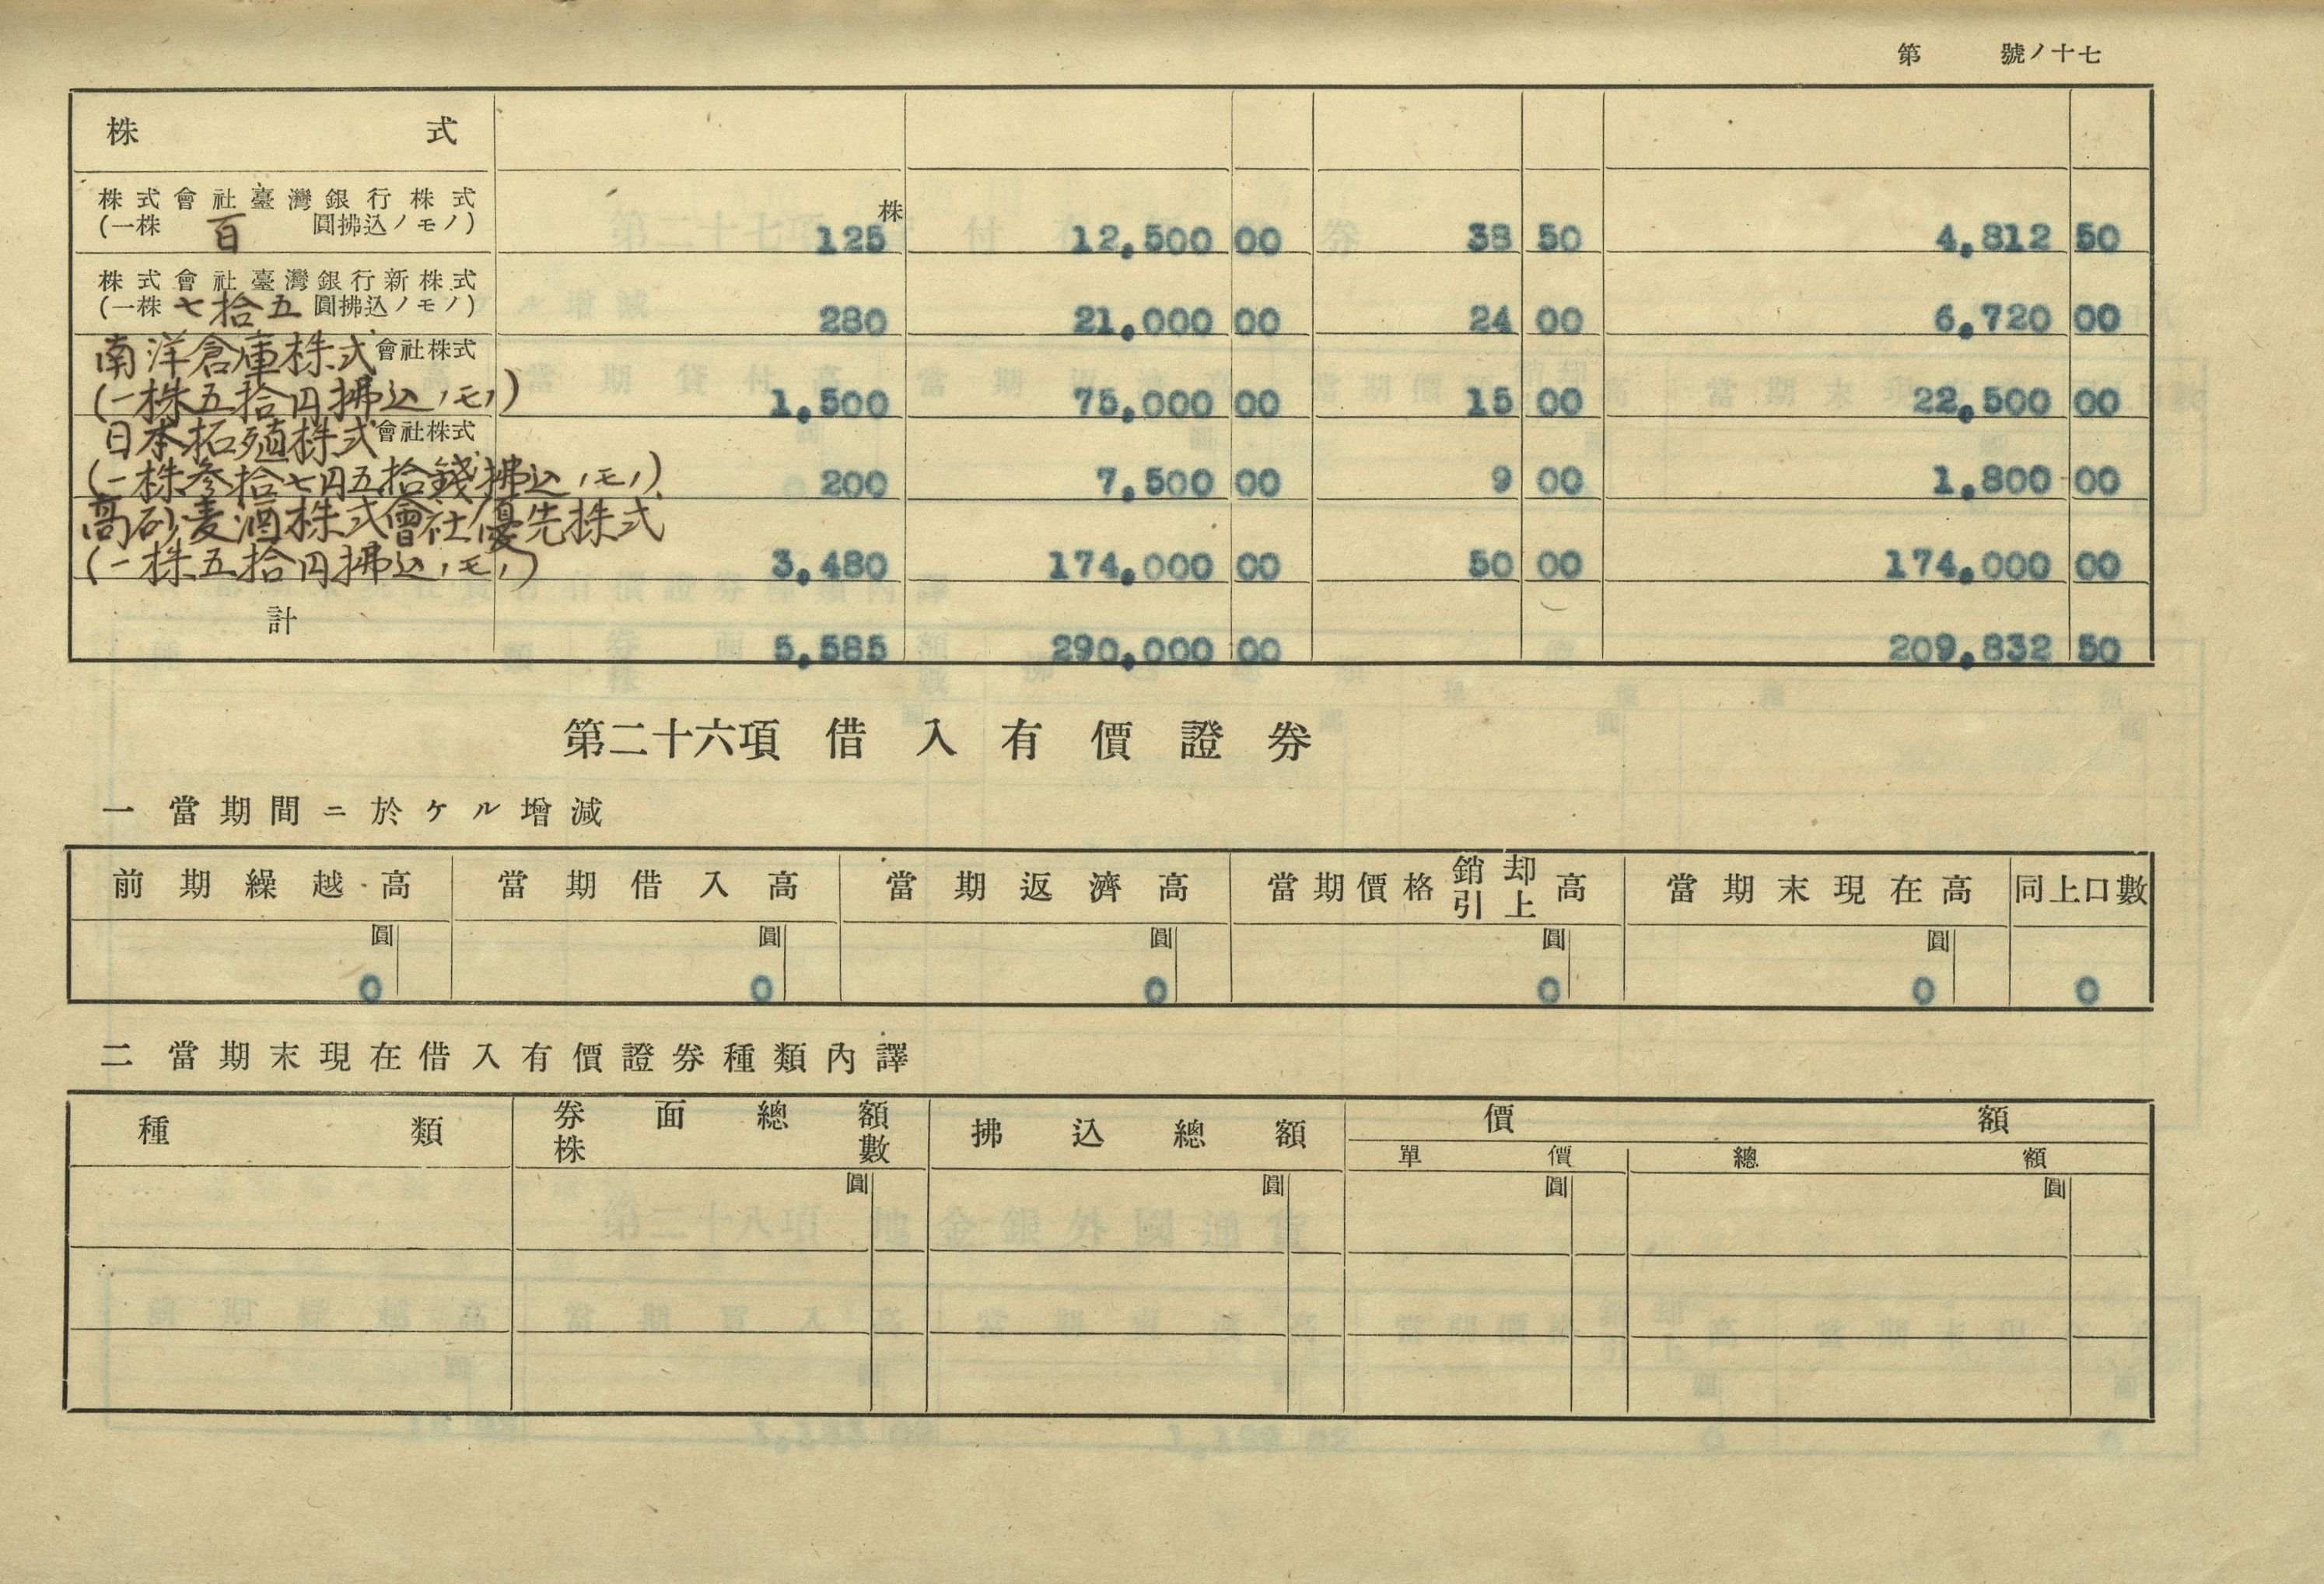 第 號ノ十七
株式
株式會社臺灣銀行株式
(一株 百 圓拂込ノモノ) 株 125 12,500 00 38 50 4,812 50
株式會社臺灣銀行新株式
(一株 七拾五 圓拂込ノモノ) 280 21,000 00 24 00 6,720 00
南洋倉庫株式會社株式
(一株五拾円拂込ノモノ) 1,500 75,000 00 15 00 22,500 00
日本拓殖株式會社株式
(一株參拾七円五拾錢拂込ノモノ) 200 7,500 00 9 00 1,800 00
高砂麦酒株式會社優先株式
(一株五拾円拂込ノモノ) 3,480 174,000 00 50 00 174,000 00
計 5,585 290,000 00 209,832 50
第二十六項 借入有價證券
一 當期間ニ於ケル增減
前期繰越高 當期借入高 當期返濟高 當期價格銷却引上高 當期末現在高 同上口數
圓 圓 圓 圓 圓
0 0 0 0 0 0
二 當期末現在借入有價證券種類內譯
種類 券面總額 株數 拂込總額 價額
單價 總額
圓 圓 圓 圓